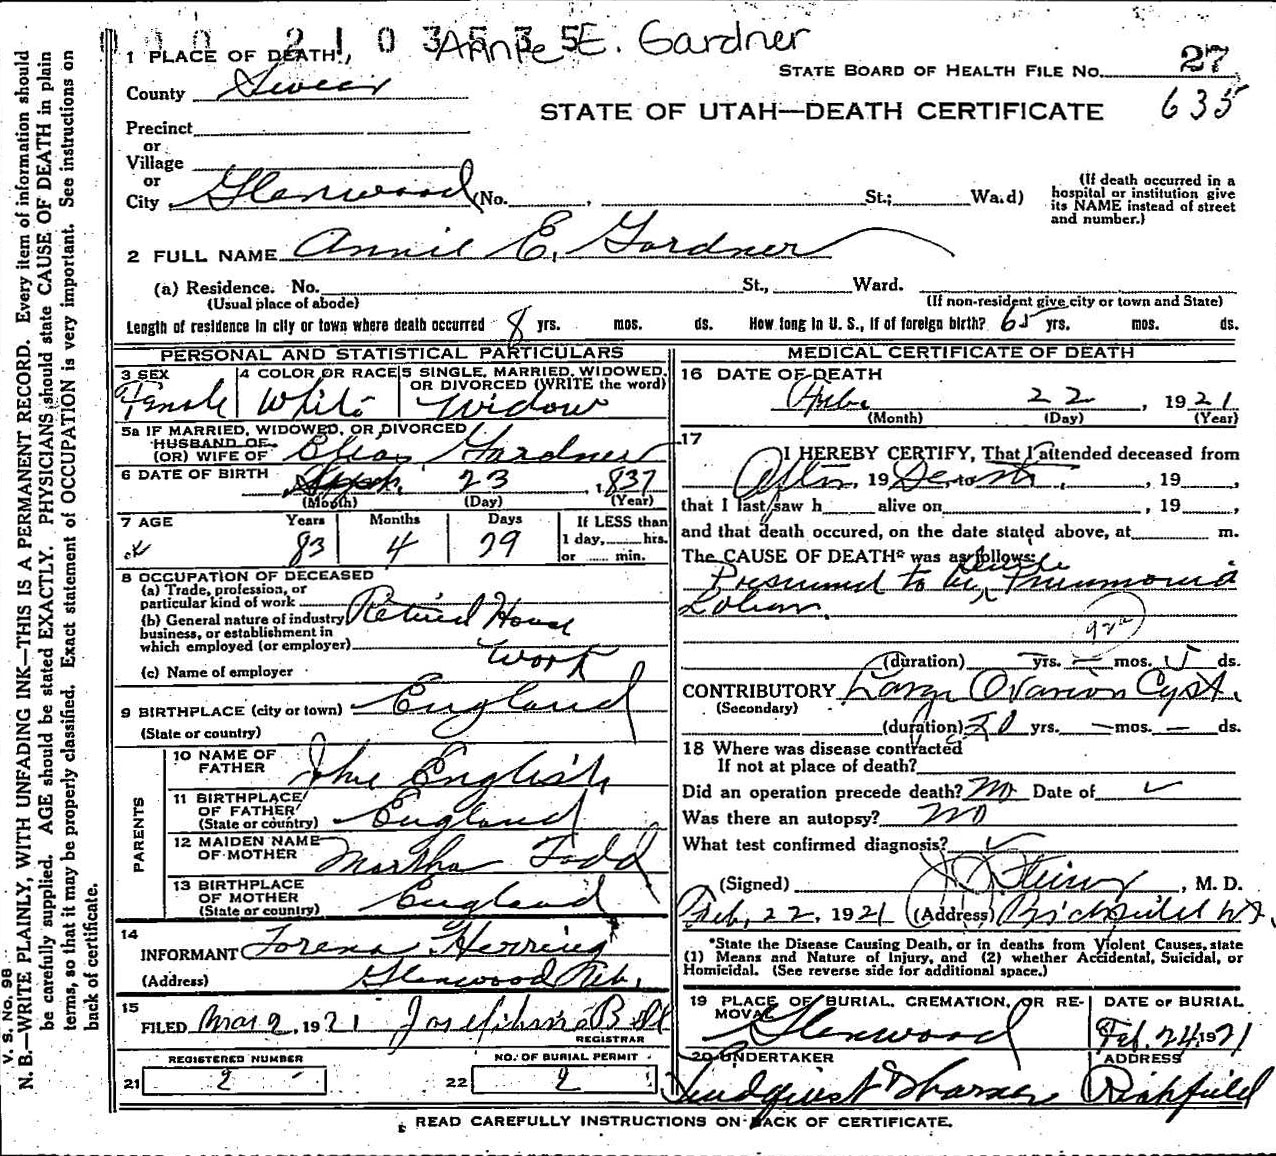 0 1 0 2 1 0 3 5 3 5
Annie E. Gardner
1 PLACE OF DEATH
STATE BOARD OF HEALTH FILE NO. 27
635
County Sevier
STATE OF UTAH—DEATH CERTIFICATE
Precinct
or
Village
or
City Glenwood (No. , St.; Ward)
(If death occurred in a
hospital or institution give
its NAME instead of street
and number.)
2 FULL NAME Annie E. Gardner
(a) Residence. No. St., Ward.
(Usual place of abode) (If non-resident give city or town and State)
Length of residence in city or town where death occurred 8 yrs. mos. ds. How long in U. S., if of foreign birth? 65 yrs. mos. ds.
PERSONAL AND STATISTICAL PARTICULARS
3 SEX Female
4 COLOR OR RACE White
5 SINGLE, MARRIED, WIDOWED,
OR DIVORCED (WRITE the word)
Widow
5a IF MARRIED, WIDOWED, OR DIVORCED
HUSBAND OF
(OR) WIFE OF Elias Gardner
6 DATE OF BIRTH Sept. 23, 1837
(Month) (Day) (Year)
7 AGE Years Months Days If LESS than
83 4 29 1 day, hrs.
or min.
8 OCCUPATION OF DECEASED
(a) Trade, profession, or
particular kind of work Retired House
(b) General nature of industry
business, or establishment in
which employed (or employer) work
(c) Name of employer
9 BIRTHPLACE (city or town) England
(State or country)
PARENTS
10 NAME OF
FATHER John English
11 BIRTHPLACE
OF FATHER England
(State or country)
12 MAIDEN NAME
OF MOTHER Martha Todd
13 BIRTHPLACE
OF MOTHER England
(State or country)
14
INFORMANT Lorena Herring
(Address) Glenwood
15
FILED Mar 2, 1921 Josephine Bell
REGISTRAR
REGISTERED NUMBER NO. OF BURIAL PERMIT
21 2 22 2
MEDICAL CERTIFICATE OF DEATH
16 DATE OF DEATH
Feb. 22, 1921
(Month) (Day) (Year)
17
I HEREBY CERTIFY, That I attended deceased from
After 19 Death, 19
that I last saw h alive on , 19
and that death occured, on the date stated above, at m.
The CAUSE OF DEATH* was as follows:
Presumed to be Senile Pneumonia
Lobar.
92a
(duration) — yrs. — mos. 5 ds.
CONTRIBUTORY Large Ovarian Cyst.
(Secondary)
(duration) 20 yrs. — mos. — ds.
18 Where was disease contracted
If not at place of death?
Did an operation precede death? No Date of
Was there an autopsy? No
What test confirmed diagnosis?
(Signed) , M. D.
Feb. 22, 1921 (Address) Richfield Ut.
*State the Disease Causing Death, or in deaths from Violent Causes, state
(1) Means and Nature of Injury, and (2) whether Accidental, Suicidal, or
Homicidal. (See reverse side for additional space.)
19 PLACE OF BURIAL, CREMATION, OR RE-
MOVAL Glenwood
DATE OF BURIAL
Feb. 24, 1921
20 UNDERTAKER
ADDRESS
Richfield
READ CAREFULLY INSTRUCTIONS ON BACK OF CERTIFICATE.
V. S. No. 98
N. B.—WRITE PLAINLY, WITH UNFADING INK—THIS IS A PERMANENT RECORD. Every item of information should
be carefully supplied. AGE should be stated EXACTLY. PHYSICIANS should state CAUSE OF DEATH in plain
terms, so that it may be properly classified. Exact statement of OCCUPATION is very important. See instructions on
back of certificate.